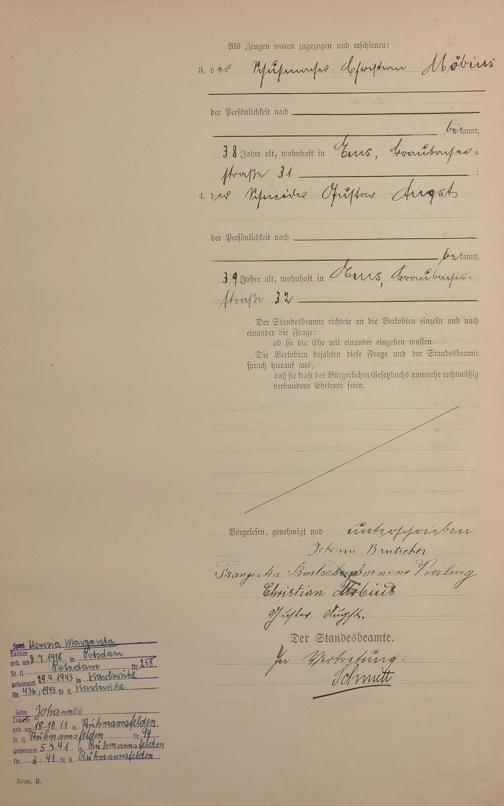 Als Zeugen waren zugezogen und erschienen:
3. der Schuhmacher Christian Möbius
der Persönlichkeit nach
bekannt,
38 Jahre alt, wohnhaft in Ems, Braubacher-
straße 31
4. der Schneider Gustav Angst
der Persönlichkeit nach
bekannt,
39 Jahre alt, wohnhaft in Ems, Braubacher-
straße 32
Der Standesbeamte richtete an die Verlobten einzeln und nach
einander die Frage:
ob sie die Ehe mit einander eingehen wollen.
Die Verlobten bejahten diese Frage und der Standesbeamte
sprach hierauf aus,
daß sie kraft des Bürgerlichen Gesetzbuchs nunmehr rechtmäßig
verbundene Eheleute seien.
Vorgelesen, genehmigt und unterschrieben
Johann
Franziska geborene
Christian Möbius
Gustav Angst.
Der Standesbeamte.
In Vertretung:
Schmitt
Sohn Theresia Margareta
Tochter
geb. am 8.7.1918 in Potsdam
St. A. Potsdam Nr. 258
geheiratet 29.4.1943 in Karlsruhe
Nr. 434/1943 St. A. Karlsruhe
Sohn Johannes
Tochter
geb. am 18.10.11 in Ruhmannsfelden
St. A. Ruhmannsfelden Nr. 94
geheiratet 5.3.41 in Ruhmannsfelden
Nr. 3/41 St. A. Ruhmannsfelden
Form. B.